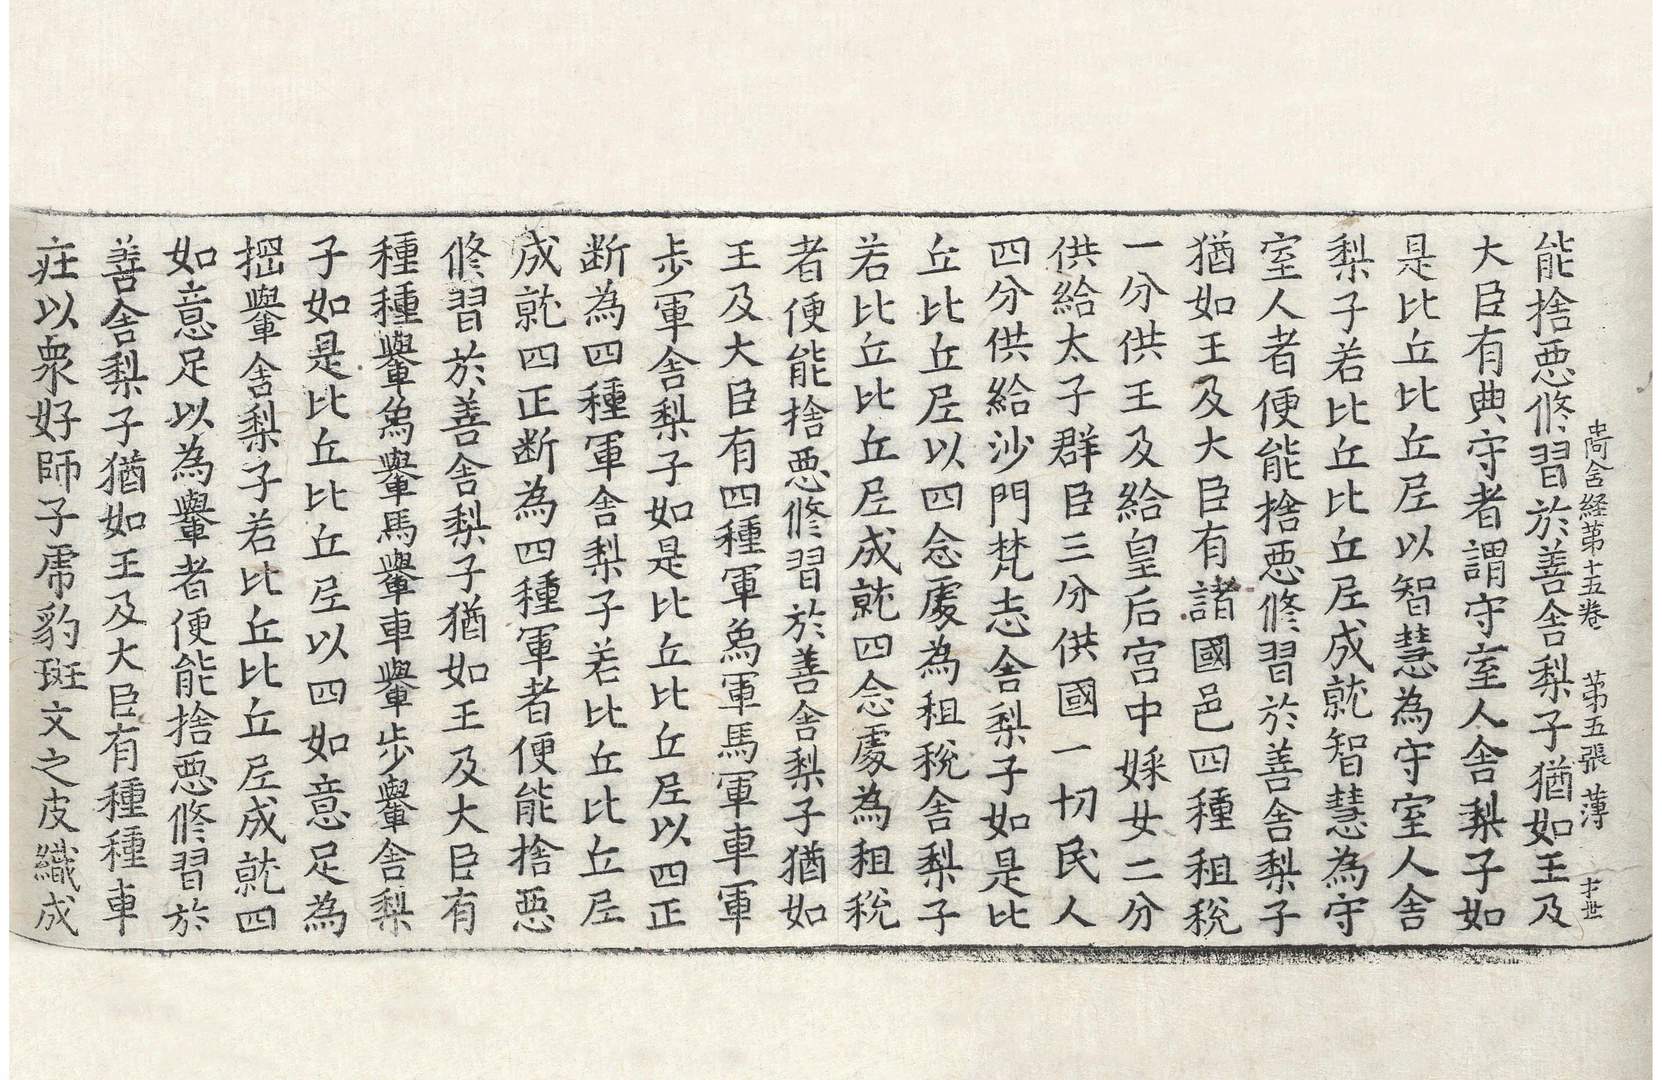 中阿含経第十五卷　第五張　薄　才世
能捨悪修習於善舍梨子猶如王及
大臣有典守者謂守室人舍梨子如
是比丘比丘尼以智慧為守室人舍
梨子若比丘比丘尼成就智慧為守
室人者便能捨悪修習於善舍梨子
猶如王及大臣有諸國邑四種租稅
一分供王及給皇后宮中婇女二分
供給太子群臣三分供國一切民人
四分供給沙門梵志舍梨子如是比
丘比丘尼以四念處為租稅舍梨子
若比丘比丘尼成就四念處為租稅
者便能捨悪修習於善舍梨子猶如
王及大臣有四種軍象軍馬軍車軍
步軍舍梨子如是比丘比丘尼以四正
断為四種軍舍梨子若比丘比丘尼
成就四正断為四種軍者便能捨悪
修習於善舍梨子猶如王及大臣有
種種轝象轝馬轝車轝步轝舍梨
子如是比丘比丘尼以四如意足為
轝舍梨子若比丘比丘尼成就四
如意足以為轝者便能捨悪修習於
善舍梨子猶如王及大臣有種種車
莊以衆好師子虎豹斑文之皮織成